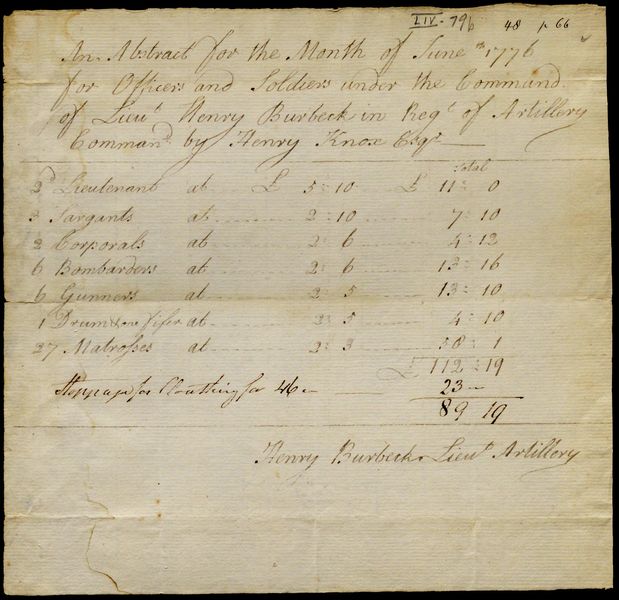 LIV - 79b 48 p 66
An Abstract for the Month of June th 1776
for Officers and Soldiers under the Command
of Lieut Henry Burbeck in Regt of Artillery
Command by Henry Knox Esqr
Total
2 Lieutenant at £ 5 : 10 £ 11 : 0
3 Sargants at 2 : 10 7 : 10
2 Corporals at 2 : 6 4 : 12
6 Bombarders at 2 : 6 13 : 16
6 Gunners at 2 : 5 13 : 10
1 Drum & one fifer at 2 : 5 4 : 10
27 Matrosses at 2 : 3 58 : 1
£ 112 : 19
Stoppage for Cloathing for 46 23
89 19
Henry Burbeck Lieut Artillery